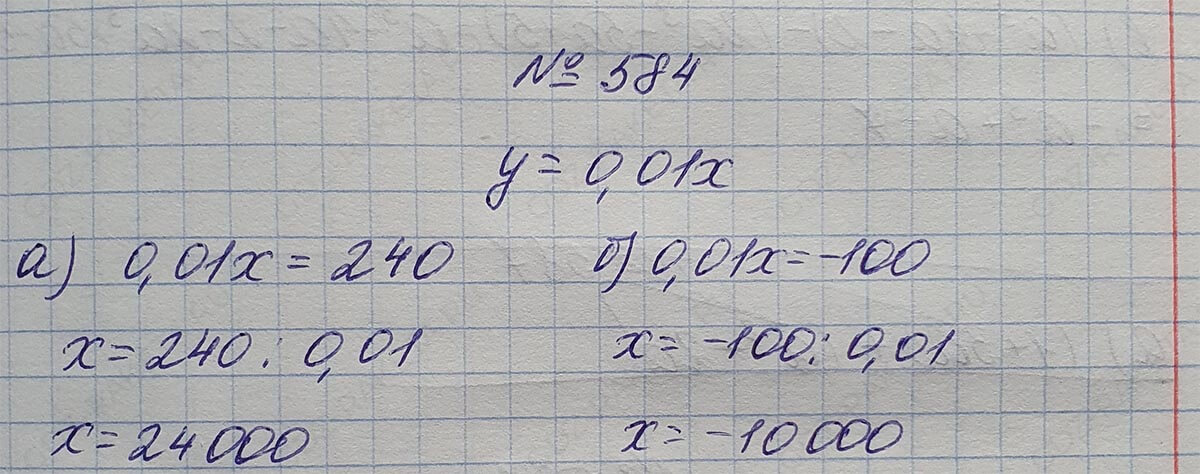 № 584
y = 0,01x
а) 0,01x = 240 б) 0,01x = -100
x = 240 : 0,01 x = -100 : 0,01
x = 24 000 x = -10 000